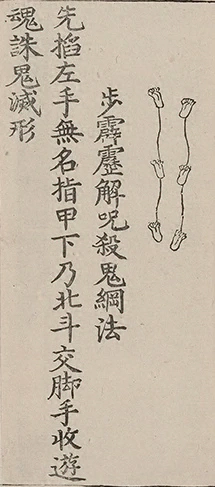 步霹靂解呪殺鬼綱法
先掐左手無名指甲下乃北斗交脚手收遊
魂誅鬼滅形